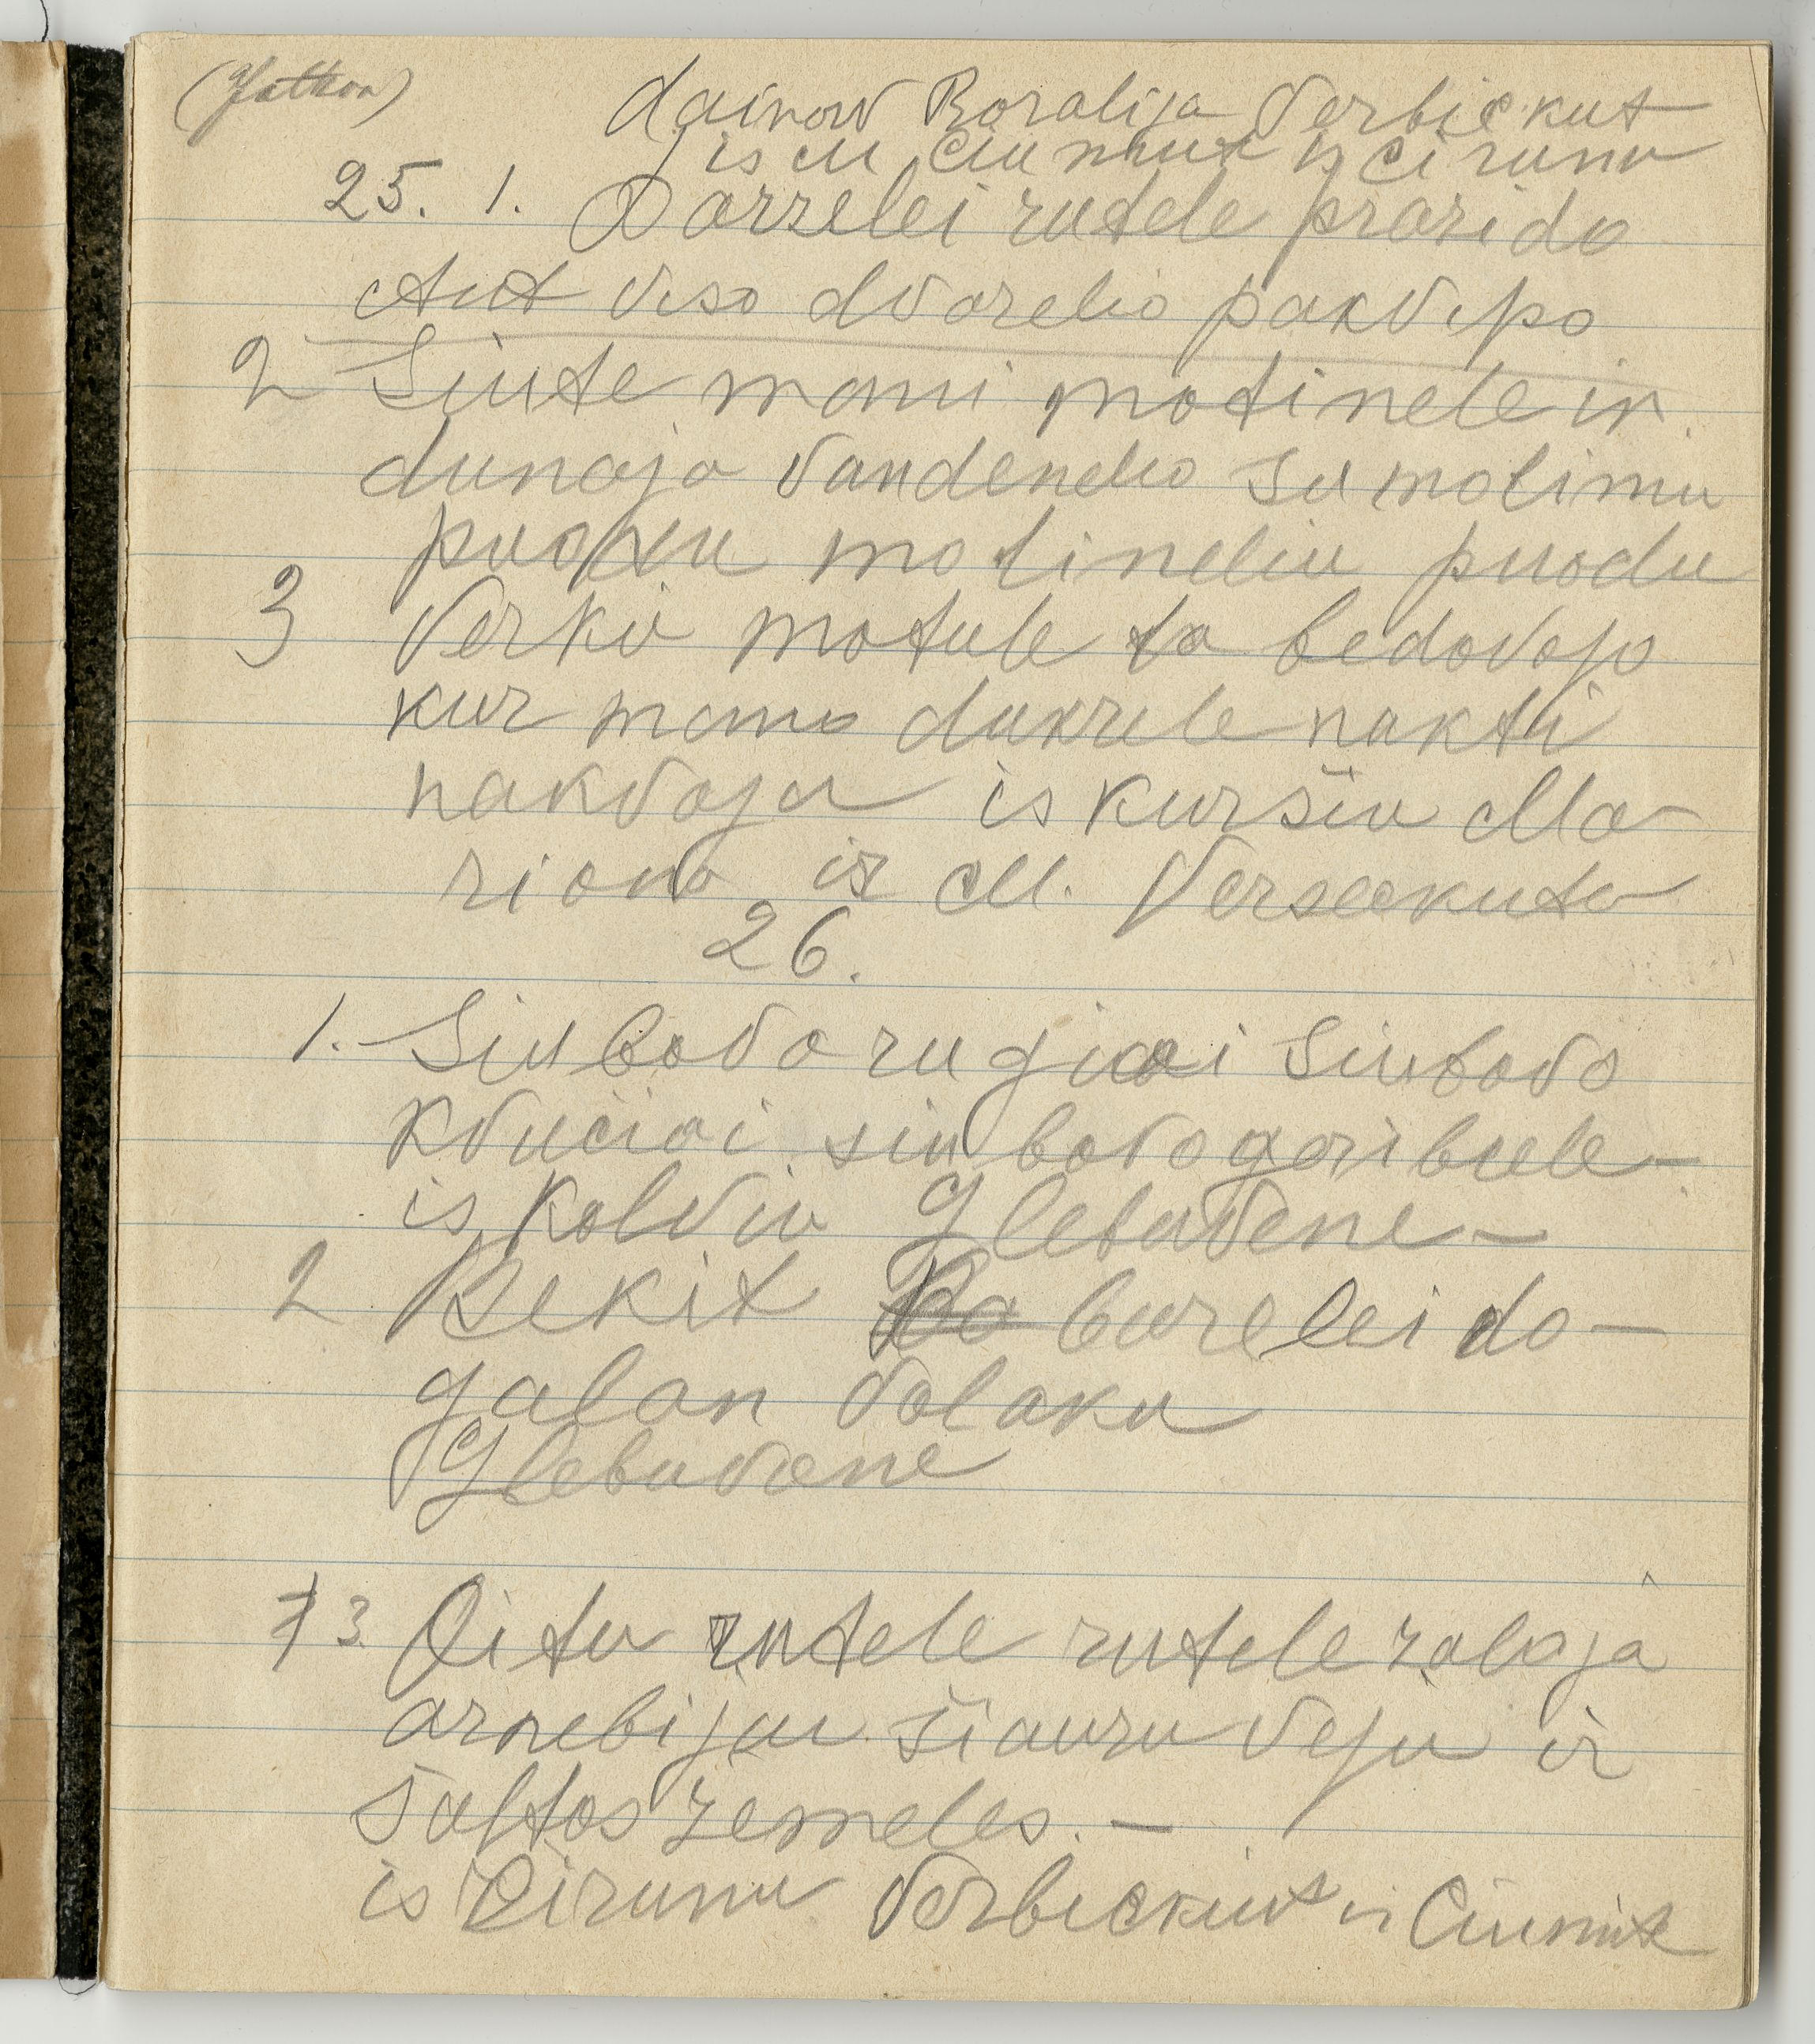 dainow Rozalija Verbickut
is M Ciunnut is Cirunu
25. 1. Darzelei rutele prazido
Ant viso dvorelio pakvipo
2 Siute mani motinele in
dunojo vandenelio su molinu
puodu motineliu puodu
3 Verki motule ta bedavojo
kur mano dukrele nakti
nakvoja is kuršiu Ma-
riono is M. Verseekuta
26.
1. Siubavo rugiai Siubavo
kviečiai siubavo garibiele
is Kolviu Glebavene -
2 Bekit bureleido -
galan valaku
Glebavane
3 Oi tu rutele rutele zaloja
arnebijai šiauru veju ir
šaltos zemeles. -
is Cirunu Verbickut ir Ciunnut